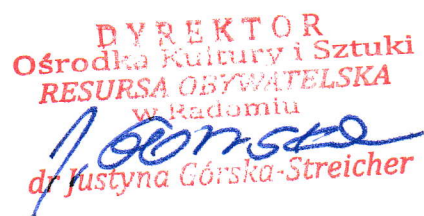 DYREKTOR
Ośrodka Kultury i Sztuki
RESURSA OBYWATELSKA
w Radomiu
J. Górska
dr Justyna Górska-Streicher